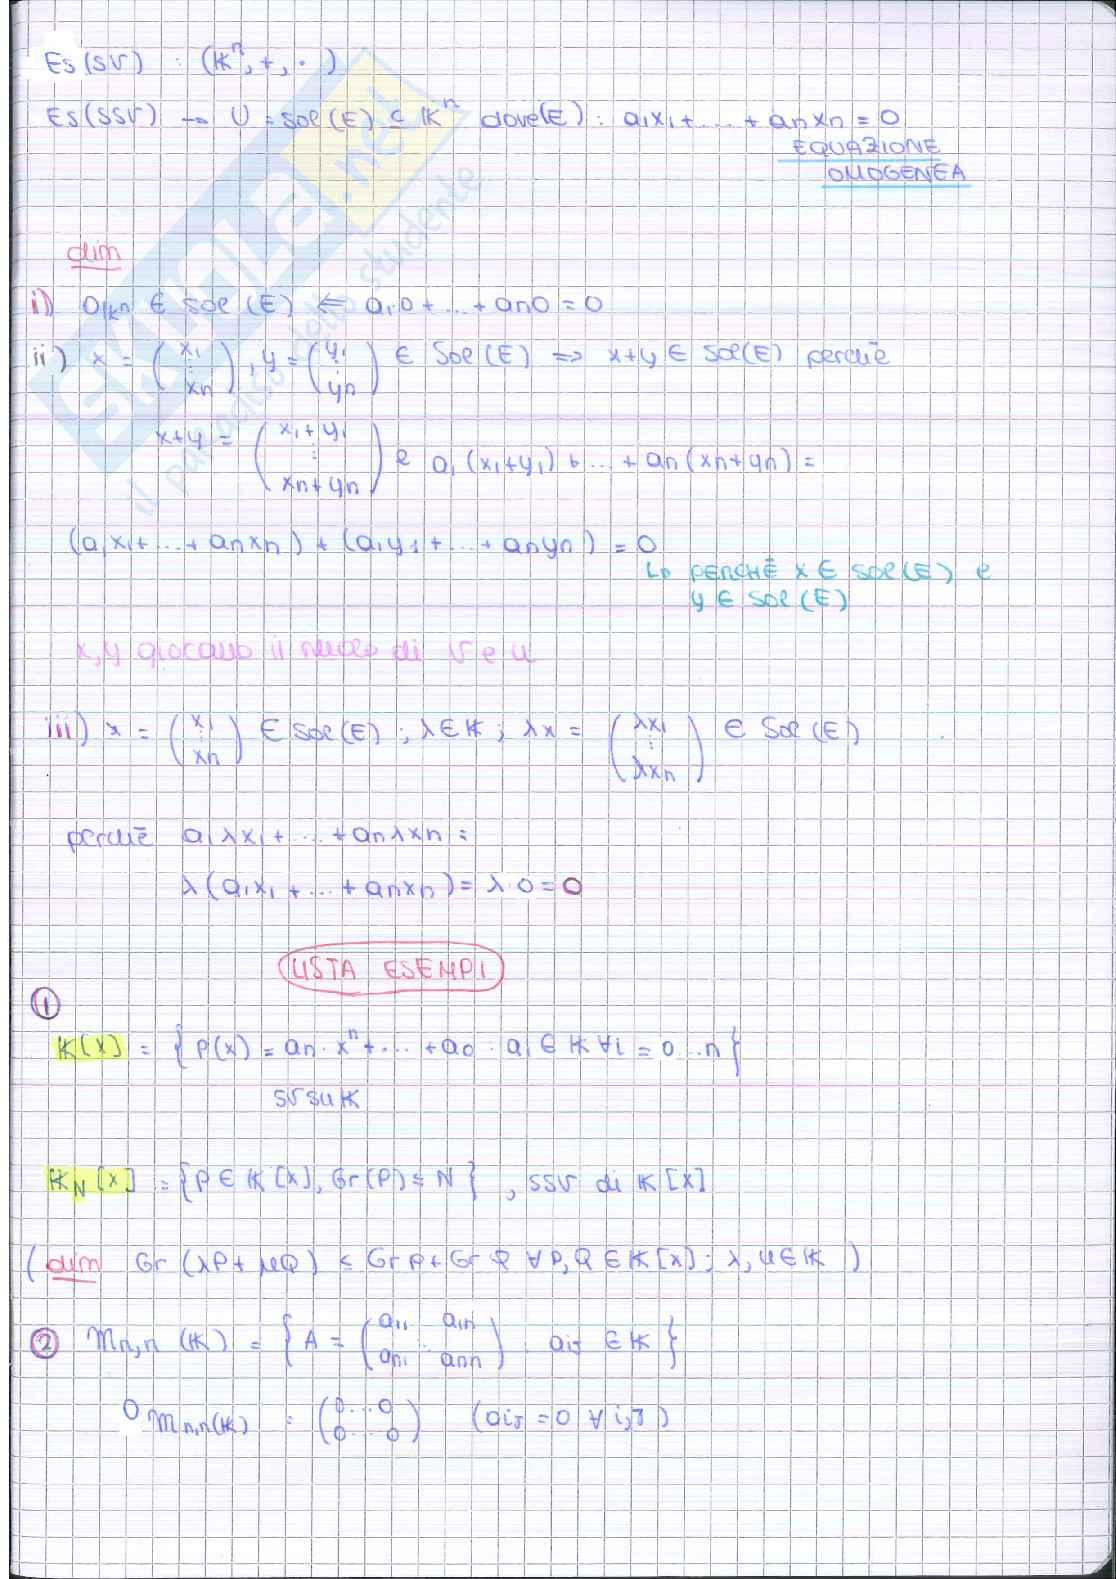 Es (SV) : (𝕂ⁿ, +, ·)
Es (SSV) → U = Sol (E) ⊆ 𝕂ⁿ dove (E) : a₁x₁ + ... + anxn = 0
EQUAZIONE
OMOGENEA
dim
i) 0𝕂ⁿ ∈ Sol (E) ⇐ a₁·0 + ... + an0 = 0
ii) x = (x₁ ⋮ xn), y = (y₁ ⋮ yn) ∈ Sol (E) ⇒ x+y ∈ Sol(E) perché
x+y = (x₁+y₁ ⋮ xn+yn) e a₁(x₁+y₁) + ... + an(xn+yn) =
(a₁x₁ + ... + anxn) + (a₁y₁ + ... + anyn) = 0
↳ PERCHÉ x ∈ Sol(E) e
y ∈ Sol (E)
x, y giocano il ruolo di v e u
iii) x = (x₁ ⋮ xn) ∈ Sol (E) ; λ ∈ 𝕂 ; λx = (λx₁ ⋮ λxn) ∈ Sol (E)
perché a₁λx₁ + ... + anλxn =
λ(a₁x₁ + ... + anxn) = λ·0 = 0
LISTA ESEMPI
①
𝕂[x] = {P(x) = an·xⁿ + ... + a0 : ai ∈ 𝕂 ∀i = 0...n}
SV su 𝕂
𝕂N[x] = {P ∈ 𝕂[x], Gr(P) ≤ N}, SSV di 𝕂[x]
(dim Gr (λP + μQ) ≤ Gr P + Gr Q ∀P, Q ∈ 𝕂[x] ; λ, μ ∈ 𝕂)
② Mn,n (𝕂) = {A = (a11 a1n ⋮ an1 ann) : aij ∈ 𝕂}
0Mn,n(𝕂) : (0...0 0...0) (aij = 0 ∀ i,J)
SKUOLA.net
il paradiso dello studente